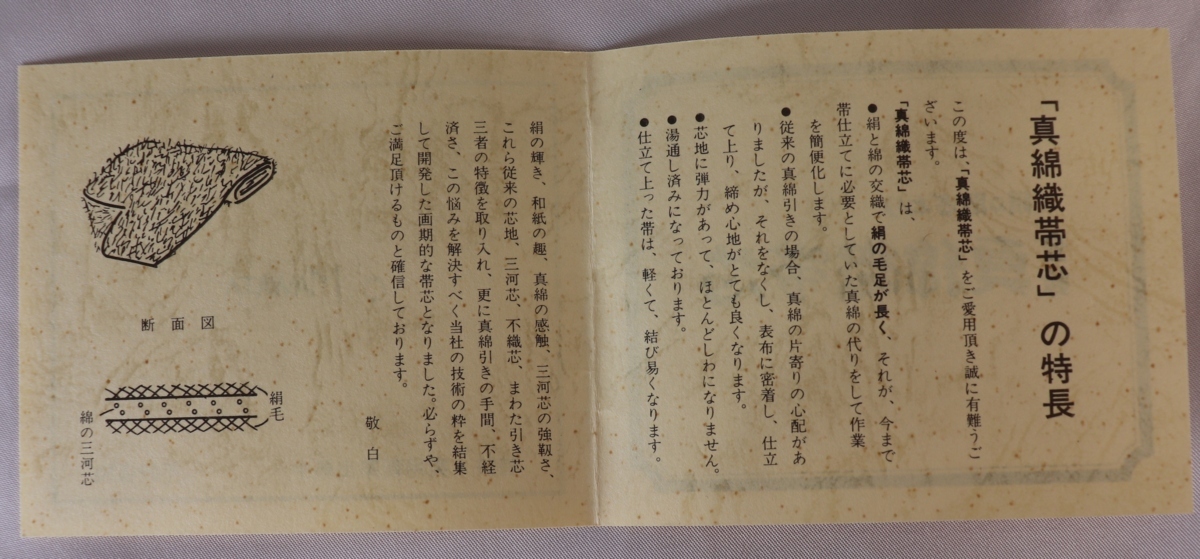 「真綿織帯芯」の特長
この度は、「真綿織帯芯」をご愛用頂き誠に有難うご
ざいます。
「真綿織帯芯」は、
●絹と綿の交織で絹の毛足が長く、それが、今まで
帯仕立てに必要としていた真綿の代りをして作業
を簡便化します。
●従来の真綿引きの場合、真綿の片寄りの心配があ
りましたが、それをなくし、表布に密着し、仕立
て上り、締め心地がとても良くなります。
●芯地に弾力があって、ほとんどしわになりません。
●湯通し済みになっております。
●仕立て上った帯は、軽くて、結び易くなります。
絹の輝き、和紙の趣、真綿の感触、三河芯の強靱さ、
これら従来の芯地、三河芯、不織芯、まわた引き芯
三者の特徴を取り入れ、更に真綿引きの手間、不経
済さ、この悩みを解決すべく当社の技術の粋を結集
して開発した画期的な帯芯となりました。必らずや、
ご満足頂けるものと確信しております。
敬白
断面図
絹毛
綿の三河芯